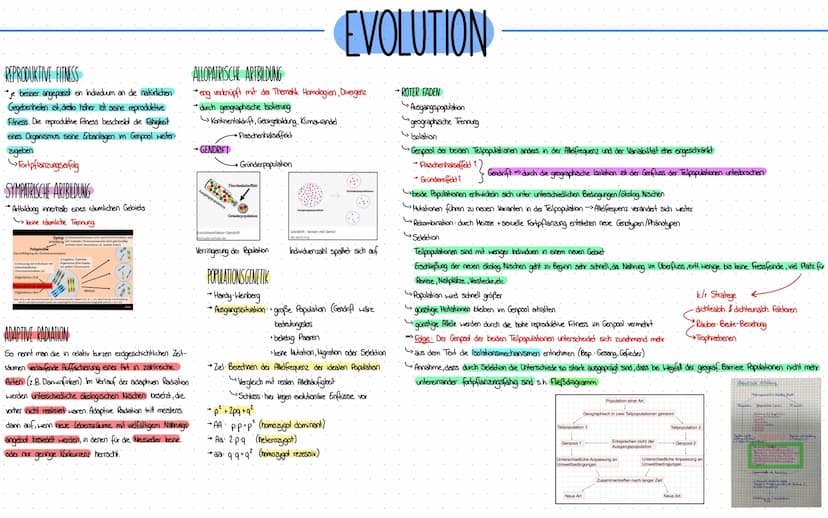 EVOLUTION
REPRODUKTIVE FITNESS
je besser angepasst ein Individuum an die natürlichen
Gegebenheiten ist, desto höher ist seine reproduktive
Fitness. Die reproduktive Fitness beschreibt die Fähigkeit
eines Organismus seine Erbanlagen im Genpool weiter-
zugeben
Fortpflanzungserfolg
SYMPATRISCHE ARTBILDUNG
Artbildung innerhalb eines räumlichen Gebiets
keine räumliche Trennung
ADAPTIVE RADIATION
So nennt man die in relativ kurzen erdgeschichtlichen Zeit-
räumen verlaufende Auffächerung einer Art in zahlreiche
Arten (z.B. Darwinfinken). Im Verlauf der adaptiven Radiation
werden unterschiedliche ökologischen Nischen besetzt, die
vorher nicht realisiert waren. Adaptive Radiation tritt meistens
dann auf, wenn neue Lebensräume mit vielfältigem Nahrungs-
angebot besiedelt werden, in denen für die Neusiedler keine
oder nur geringe Konkurrenz herrscht.
ALLOPATRISCHE ARTBILDUNG
eng verknüpft mit der Thematik Homologien, Divergenz
durch geographische Isolierung
Kontinentaldrift, Georgsbildung, Klimawandel
Flaschenhalseffekt
GENDRIFT
Gründerpopulation
Flaschenhalseffekt
Gründereffekt
Verringerung der Population
Individuenzahl spaltet sich auf
POPULATIONSGENETIK
Hardy-Weinberg
Ausgangssituation: große Population (Gendrift wäre
bedeutungslos
beliebig Paaren
keine Mutation, Migration oder Selektion
Ziel: Berechnen der Allelfrequenz der idealen Population
Vergleich mit realen Allelhäufigkeit
Schluss: hier liegen evolutionäre Einflüsse vor
p² + 2pq + q²
AA: p·p = p² (homozygot dominant)
Aa: 2·p·q (heterozygot)
aa: q·q = q² (homozygot rezessiv)
ROTER FADEN:
Ausgangspopulation
geographische Trennung
Isolation
Genpool der beiden Teilpopulationen anders in der Allelfrequenz und der Variabilität eher eingeschränkt
Flaschenhalseffekt
Gründereffekt
Gendrift ⇒ durch die geographische Isolation ist der Genfluss der Teilpopulationen unterbrochen
beide Populationen entwickeln sich unter unterschiedlichen Bedingungen/ökolog. Nischen
Mutationen führen zu neuen Varianten in der Teilpopulation → Allelfrequenz verändert sich weiter
Rekombination: durch Meiose + sexuelle Fortpflanzung entstehen neue Genotypen/Phänotypen
Selektion
Teilpopulationen sind mit weniger Individuen in einem neuen Gebiet
Erschließung der neuen ökolog. Nischen geht zu Beginn sehr schnell, da Nahrung im Überfluss, evtl. wenige bis keine Fressfeinde, viel Platz für
Reviere, Nistplätze, Verstecke, etc.
Population wird schnell größer
günstige Mutationen bleiben im Genpool erhalten
günstige Allele werden durch die hohe reproduktive Fitness im Genpool vermehrt
Folge: Der Genpool der beiden Teilpopulationen unterscheidet sich zunehmend mehr
aus dem Text die Isolationsmechanismen entnehmen (Bsp.: Gesang, Gefieder)
Annahme, dass durch Selektion die Unterschiede so stark ausgeprägt sind, dass bei Wegfall der geograf. Barriere Populationen nicht mehr
untereinander fortpflanzungsfähig sind s.h. Fließdiagramm
k/r Stratege
dichteabh. & dichteunabh. Faktoren
Räuber-Beute-Beziehung
Trophieebenen
Population einer Art
Geographisch in zwei Teilpopulationen getrennt
Teilpopulation 1
Teilpopulation 2
Genpool 1
Entsprechen nicht der
Ausgangspopulation
Genpool 2
Unterschiedliche Anpassung an
Umweltbedingungen
Unterschiedliche Anpassung an
Umweltbedingungen
Zusammentreffen nach langer Zeit
Neue Art
Neue Art